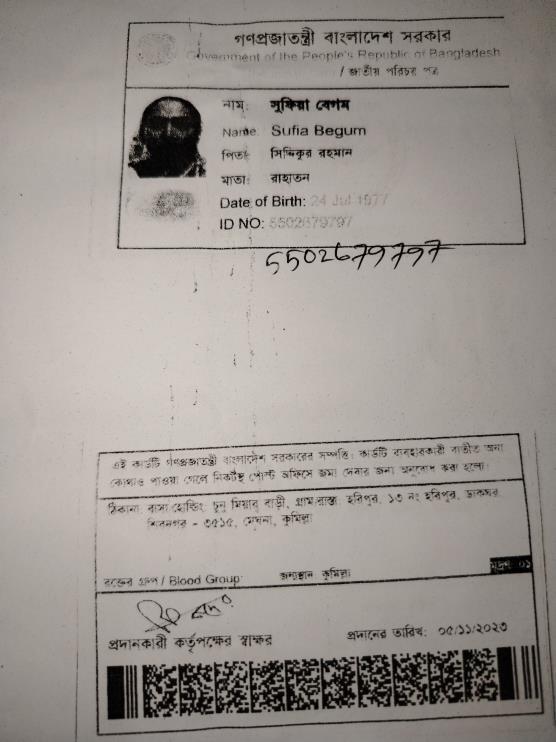 গণপ্রজাতন্ত্রী বাংলাদেশ সরকার
Government of the People's Republic of Bangladesh
/ জাতীয় পরিচয় পত্র
নাম: সুফিয়া বেগম
Name: Sufia Begum
পিতা: সিদ্দিকুর রহমান
মাতা: রাহাতন
Date of Birth: 24 Jul 1977
ID NO: 5502679797
5502679797
এই কার্ডটি গণপ্রজাতন্ত্রী বাংলাদেশ সরকারের সম্পত্তি। কার্ডটি ব্যবহারকারী ব্যতীত অন্য
কোথাও পাওয়া গেলে নিকটস্থ পোস্ট অফিসে জমা দেবার জন্য অনুরোধ করা হলো।
ঠিকানা: বাসা/হোল্ডিং: চুনু মিয়ার বাড়ী, গ্রাম/রাস্তা: হরিপুর, ১৩ নং হরিপুর, ডাকঘর:
শিবনগর - ৩৫১৫, মেঘনা, কুমিল্লা
রক্তের গ্রুপ / Blood Group: জন্মস্থান: কুমিল্লা মুদ্রণ: ০১
প্রদানকারী কর্তৃপক্ষের স্বাক্ষর প্রদানের তারিখ: ০৫/১১/২০২৩